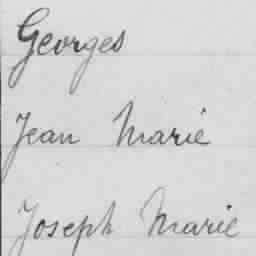 Georges
Jean Marie
Joseph Marie